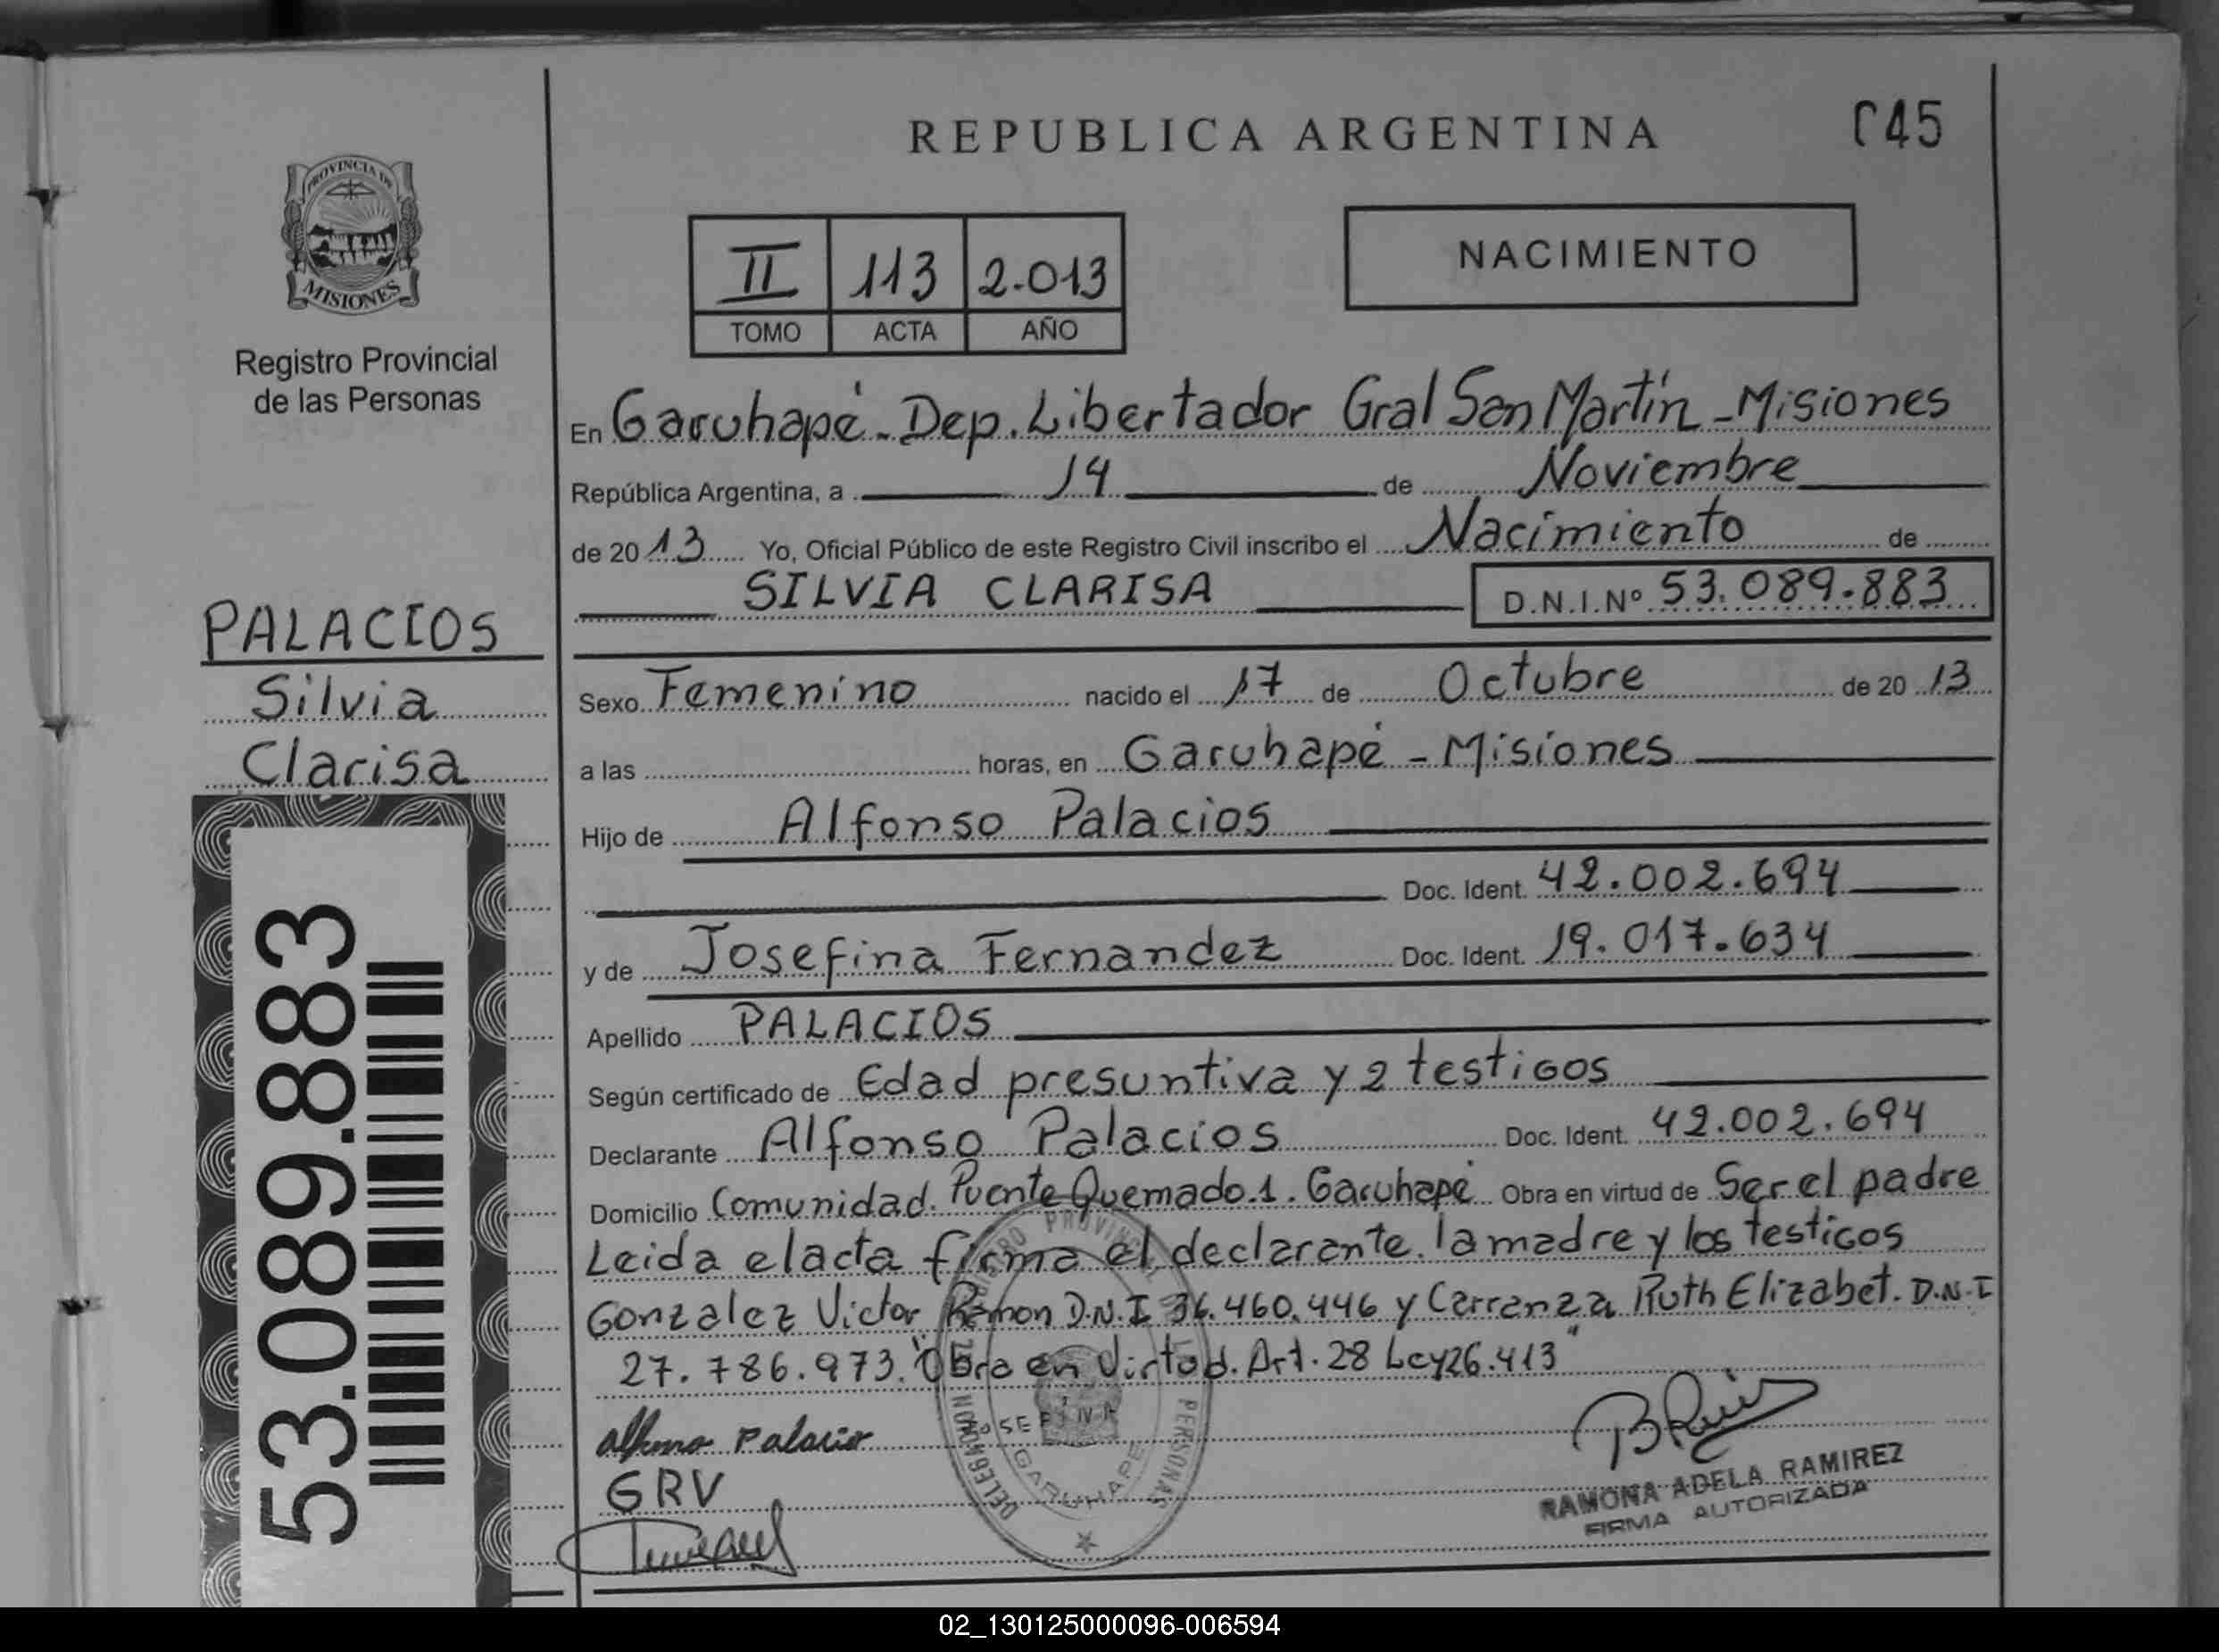 REPUBLICA ARGENTINA
045
PROVINCIA DE
MISIONES
Registro Provincial
de las Personas
II 113 2.013
TOMO ACTA AÑO
NACIMIENTO
En Garuhapé - Dep. Libertador Gral San Martín - Misiones
República Argentina, a 14 de Noviembre
de 20 13 Yo, Oficial Público de este Registro Civil inscribo el Nacimiento de
SILVIA CLARISA D.N.I.Nº 53.089.883
PALACIOS
Silvia
Clarisa
53.089.883
Sexo Femenino nacido el 17 de Octubre de 20 13
a las horas, en Garuhapé - Misiones
Hijo de Alfonso Palacios
Doc. Ident. 42.002.694
y de Josefina Fernandez Doc. Ident. 19.017.634
Apellido PALACIOS
Según certificado de Edad presuntiva y 2 testigos
Declarante Alfonso Palacios Doc. Ident. 42.002.694
Domicilio Comunidad. Puente Quemado.1. Garuhapé Obra en virtud de Ser el padre
Leida el acta firma el declarante. la madre y los testigos
Gonzalez Victor Ramon D.N.I 36.460.446 y Carranza Ruth Elizabet. D.N.I
27.786.973. "Obra en Virtud. Art. 28 Ley26.413"
alfonso Palacio
GRV
GARUHAPE
RAMONA ADELA RAMIREZ
FIRMA AUTORIZADA
02_130125000096-006594